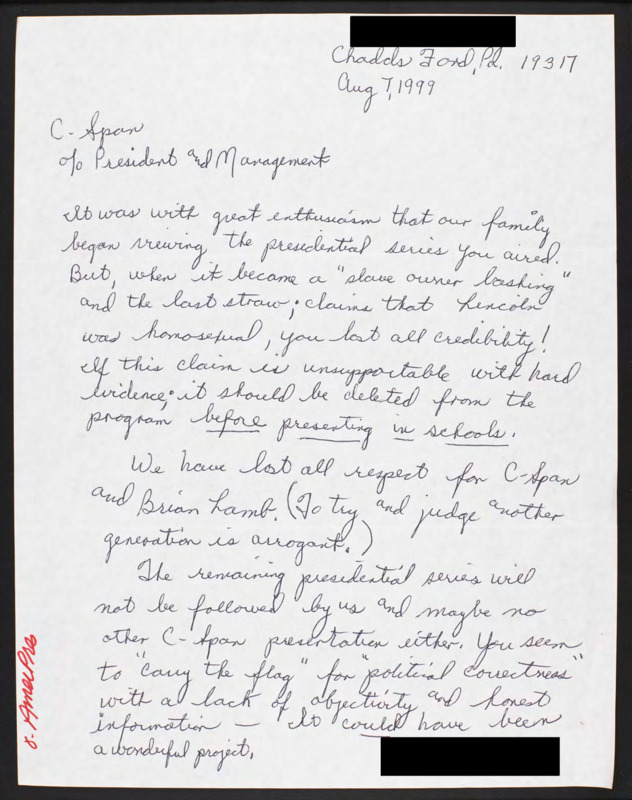 Chadds Ford, Pa. 19317
Aug 7, 1999
C-Span
o/o President and Management
It was with great enthusiasm that our family
began viewing the presidential series you aired.
But, when it became a "slave owner bashing"
and the last straw; claims that Lincoln
was homosexual, you lost all credibility!
If this claim is unsupportable with hard
evidence; it should be deleted from the
program before presenting in schools.
We have lost all respect for C-Span
and Brian Lamb. (To try and judge another
generation is arrogant.)
The remaining presidential series will
not be followed by us and maybe no
other C-Span presentation either. You seem
to "carry the flag" for "political correctness"
with a lack of objectivity and honest
information — It could have been
a wonderful project.
8-AmerPres